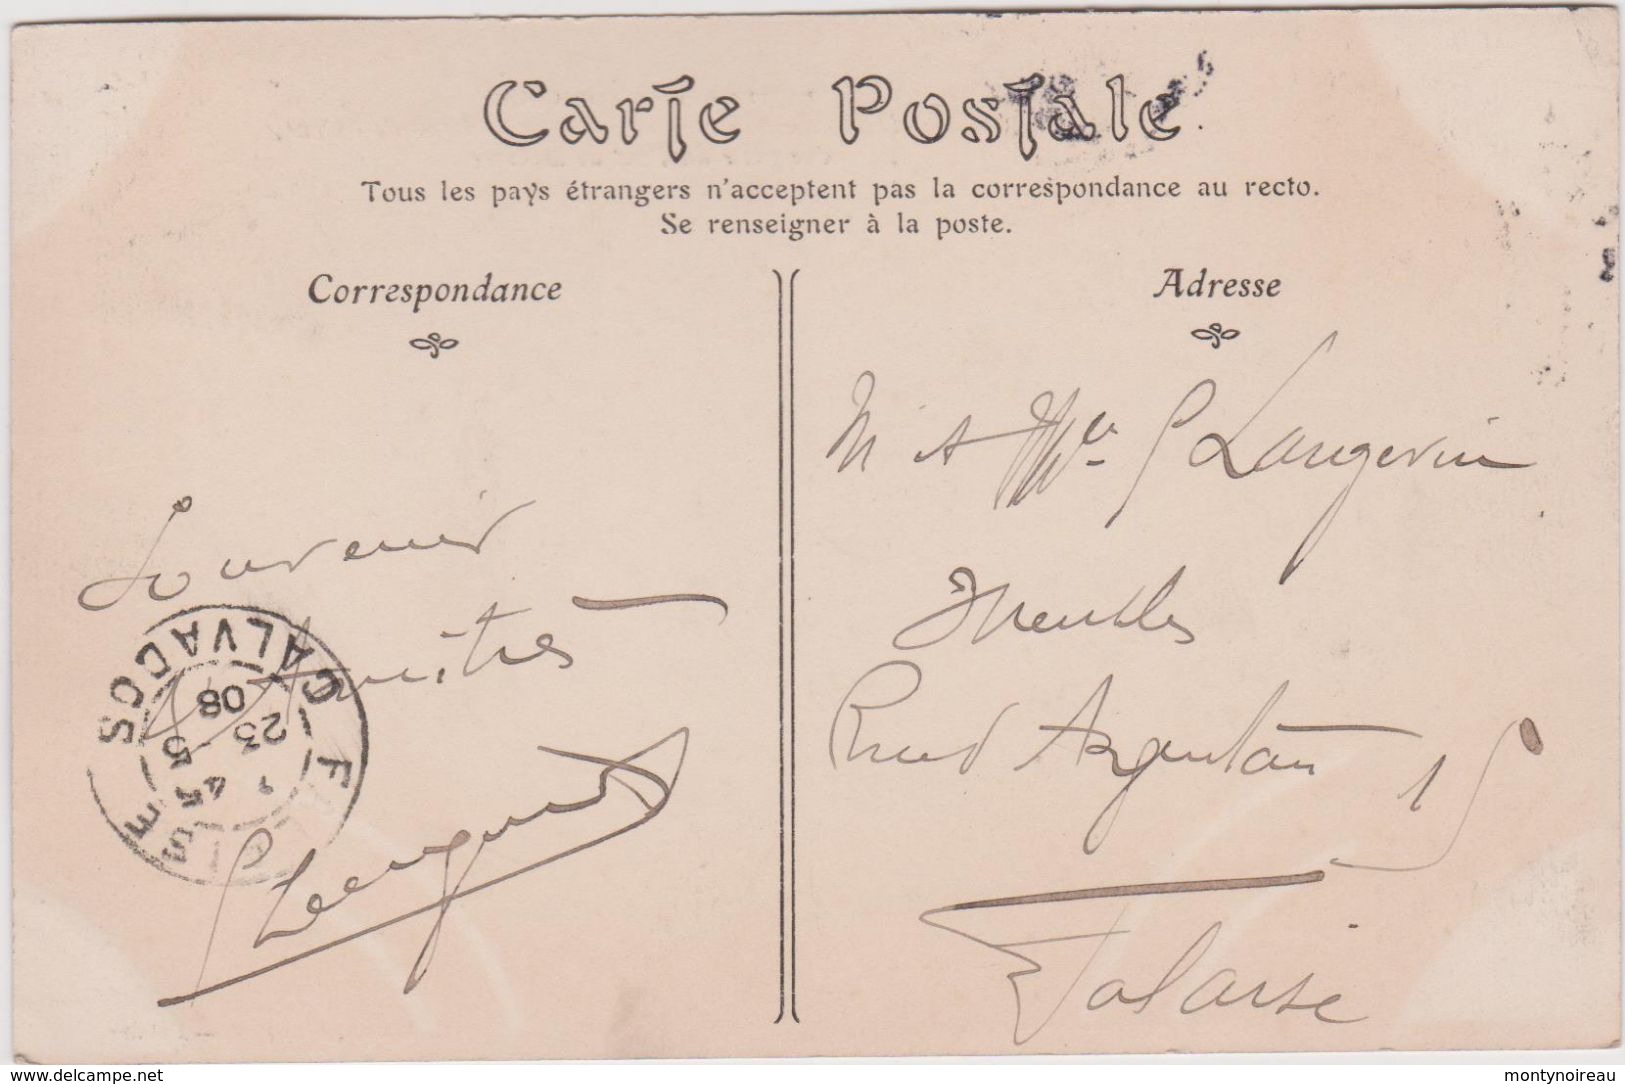 Carte Postale
Tous les pays étrangers n'acceptent pas la correspondance au recto.
Se renseigner à la poste.
Correspondance
Adresse
Souvenir
Amitiés
CALVADOS
FALAISE
1 45
23 5
08
M et Mme P Langevin
Meubles
Rue d'Argentan 15
Falaise
www.delcampe.net
montynoireau